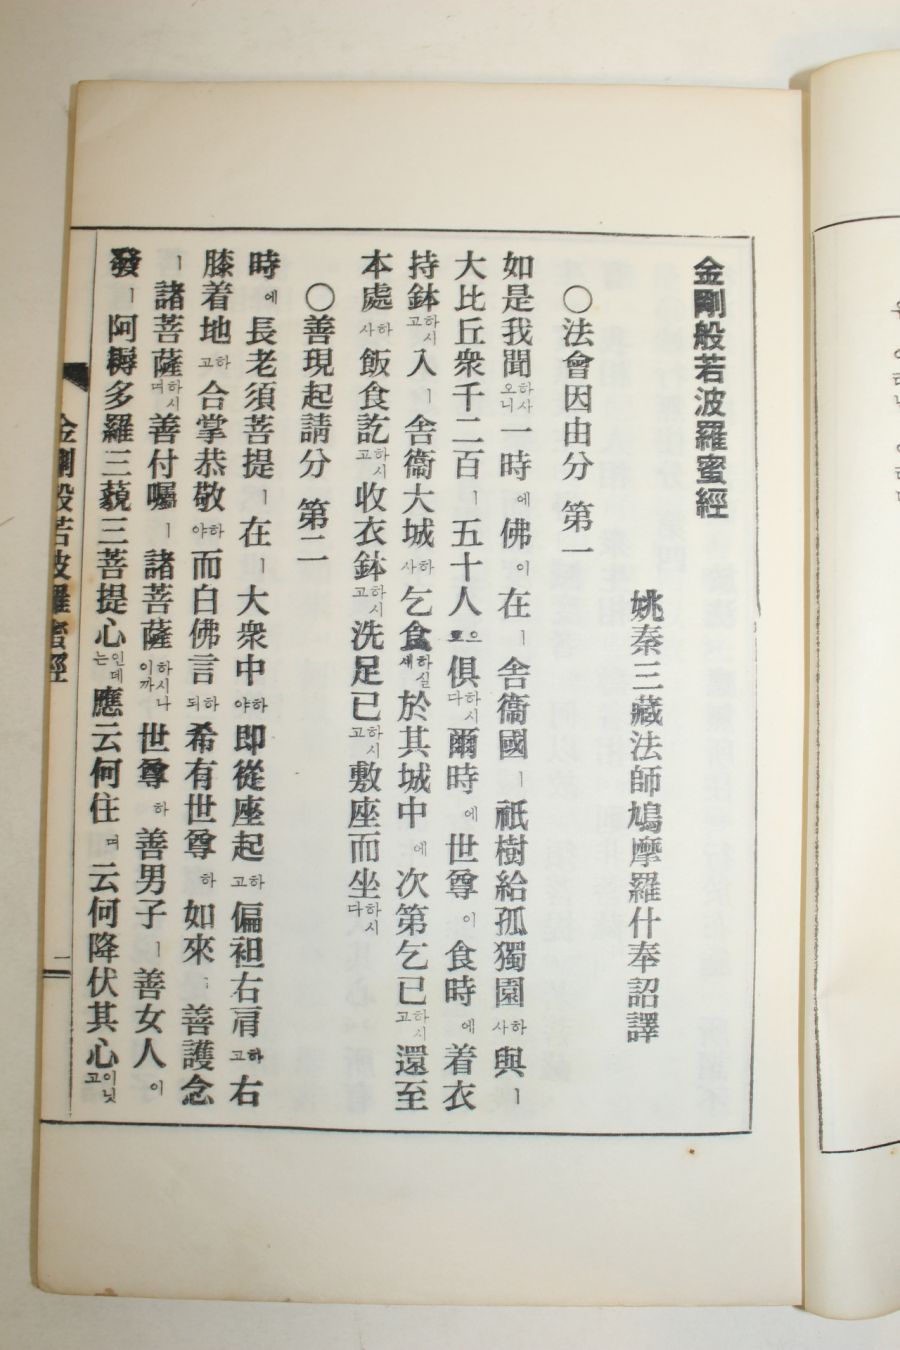 金剛般若波羅蜜經
姚秦三藏法師鳩摩羅什奉詔譯
〇法會因由分 第一
如是我聞하사오니一時에佛이在ㅣ舍衞國ㅣ祇樹給孤獨園하사與ㅣ
大比丘衆千二百ㅣ五十人으로俱하시다爾時에世尊이食時에着衣
持鉢하시고入ㅣ舍衞大城하사乞食하실새於其城中에次第乞已하시고還至
本處하사飯食訖하시고收衣鉢하시고洗足已하시고敷座而坐하시다
〇善現起請分 第二
時에長老須菩提ㅣ在ㅣ大衆中하야即從座起하고偏袒右肩하고右
膝着地하고合掌恭敬하야而白佛言하되希有世尊하如來ㅣ善護念
ㅣ諸菩薩하시며善付囑ㅣ諸菩薩하시나이까世尊하善男子ㅣ善女人이
發ㅣ阿耨多羅三藐三菩提心인데는應云何住며云何降伏其心이닛고
金剛般若波羅蜜經
一